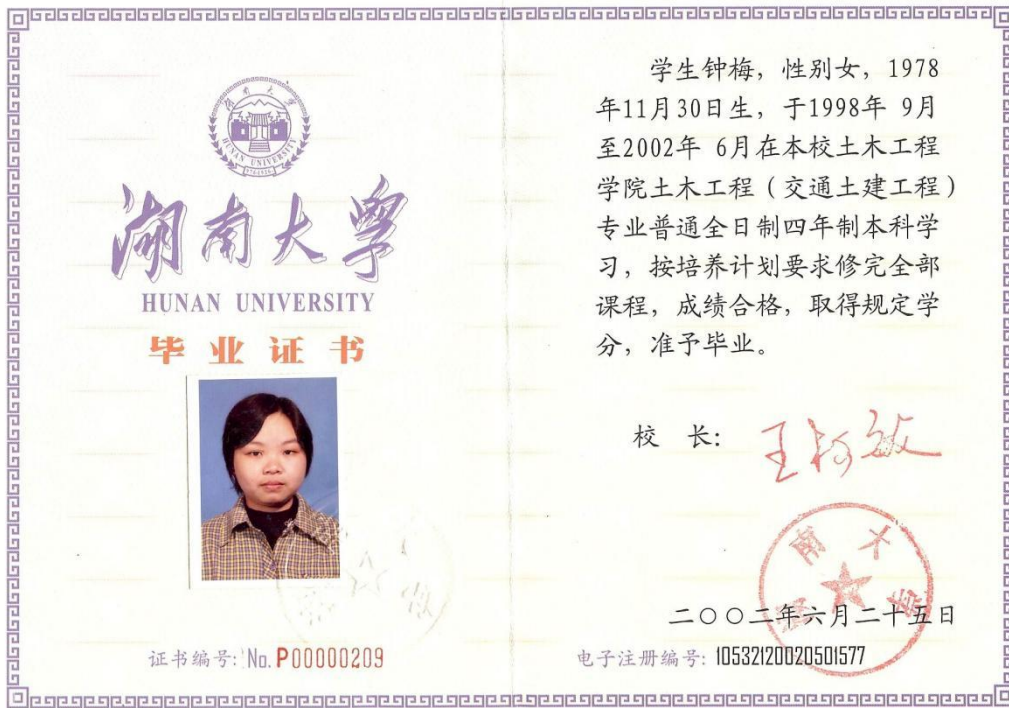 湖南大学
HUNAN UNIVERSITY
湖南大学
HUNAN UNIVERSITY
毕业证书
证书编号: No. P00000209
学生钟梅，性别女，1978
年11月30日生，于1998年 9月
至2002年 6月在本校土木工程
学院土木工程（交通土建工程）
专业普通全日制四年制本科学
习，按培养计划要求修完全部
课程，成绩合格，取得规定学
分，准予毕业。
校 长: 王柯敏
湖南大学
二〇〇二年六月二十五日
电子注册编号: 105321200205015​77